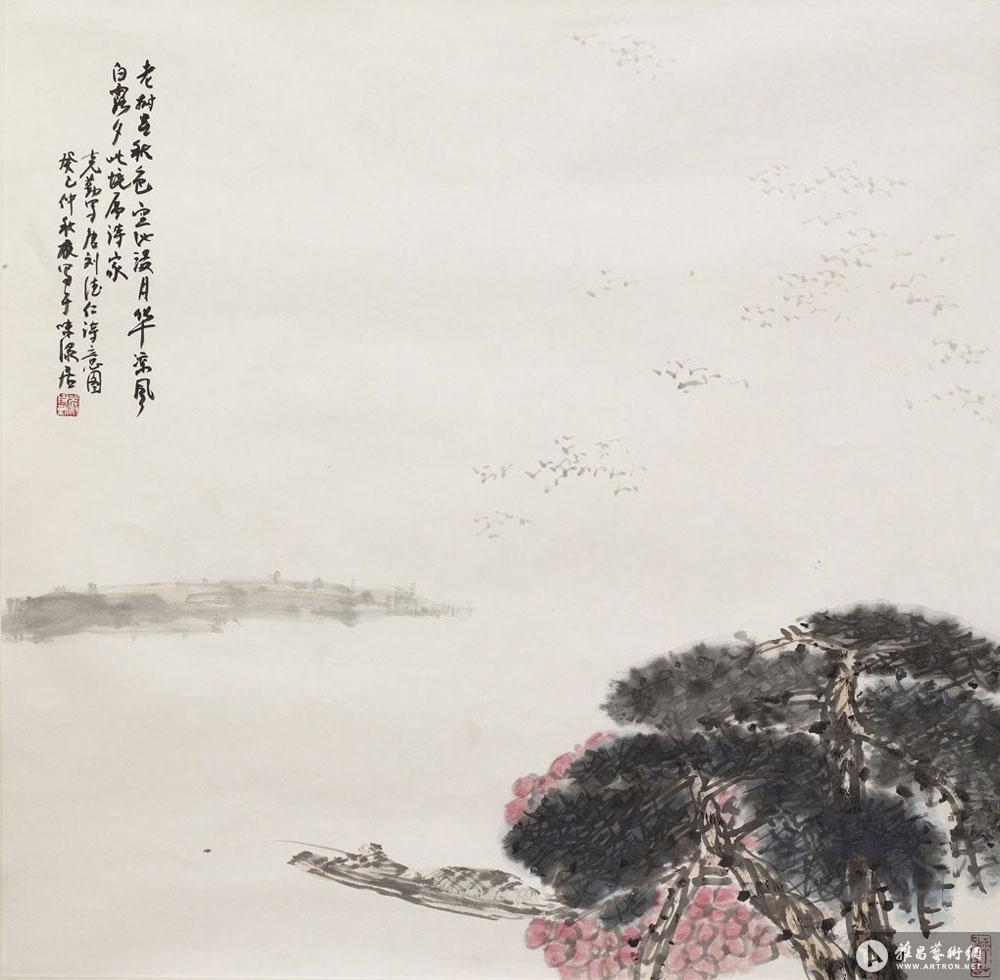 老树呈秋色空池浸月华凉风
白露夕此境属诗家
克勤写唐刘得仁诗意图
癸巳仲秋夜写于味渌居
雅昌藝術網
WWW.ARTRON.NET